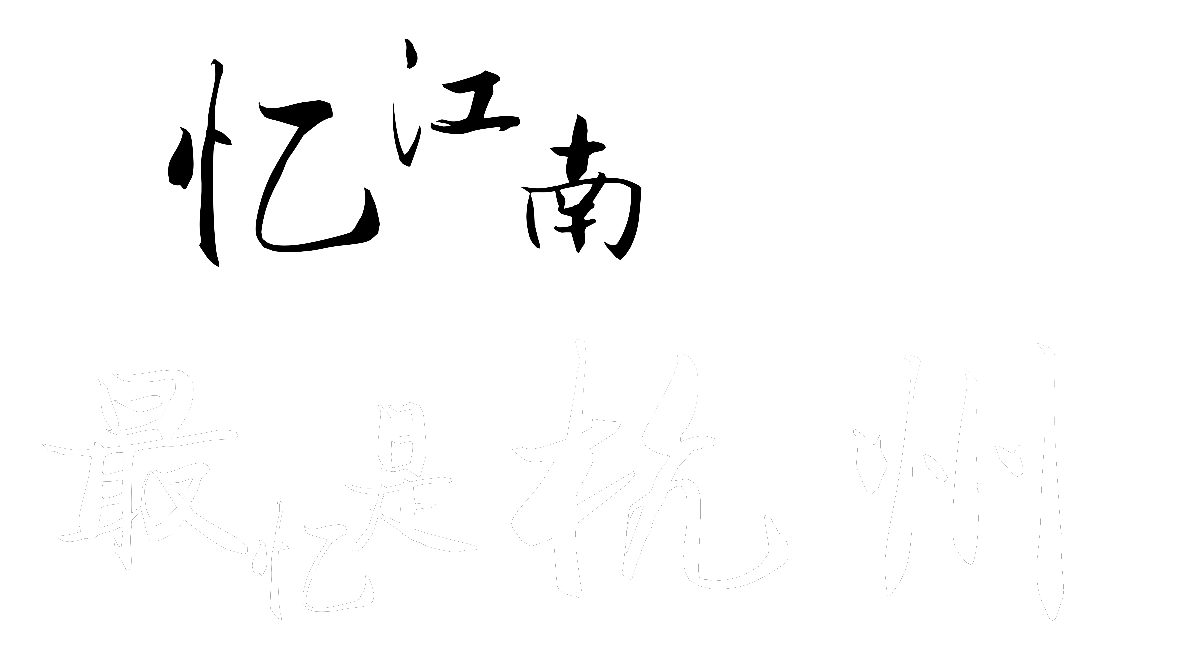 忆江南
最忆是杭州